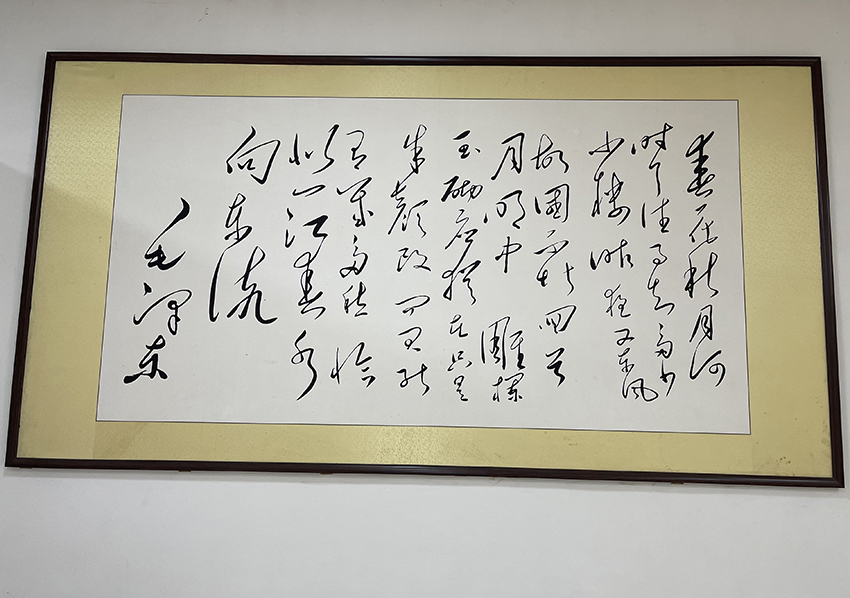 春花秋月何
时了往事知多少
小楼昨夜又东风
故國不堪回首
月明中 雕欄
玉砌应犹在只是
朱颜改 问君能
有幾多愁 恰
似一江春水
向东流
毛泽东